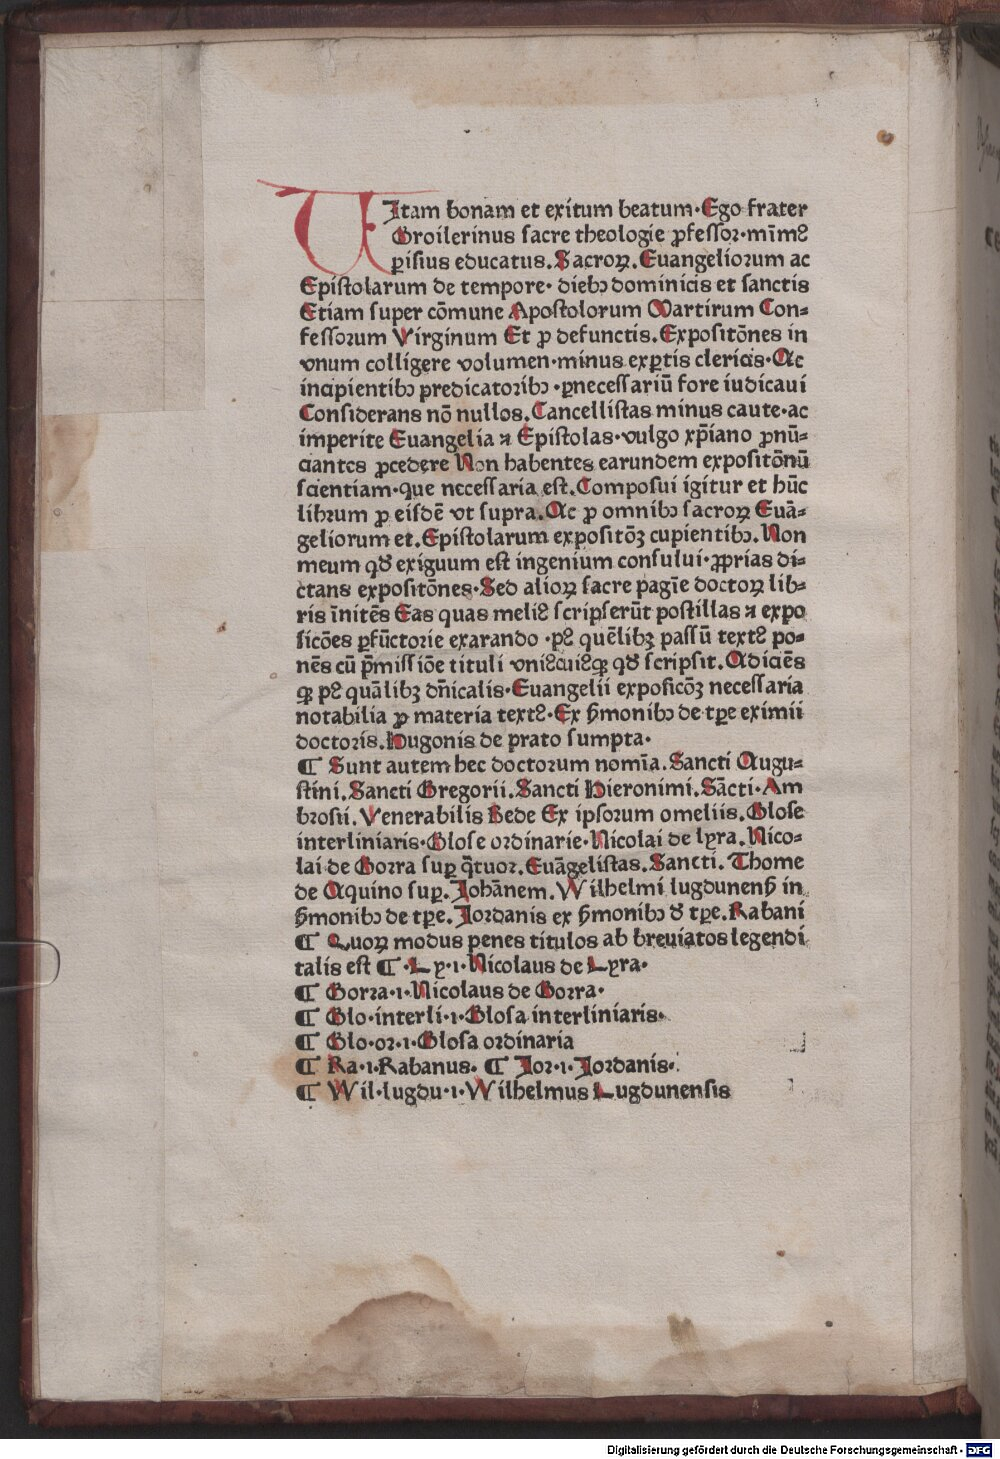 UItam bonam et exitum beatum·Ego frater
Groilerinus sacre theologie ꝓfessoꝛ·mīmꝰ
ꝑisius educatus.Sacroꝝ.Euangelioꝛum ac
Epistolarum de tempore·diebꝫ dominicis et sanctis
Etiam super cōmune Apostolorum Martirum Con⸗
fessoꝛum Virginum Et ꝓ defunctis.Expositōnes in
vnum colligere volumen·minus exꝑtis clericis·Ac
incipientibꝫ predicatoꝛibꝫ·ꝑnecessariū fore iudicaui
Considerans nō nullos.Cancellistas minus caute·ac
imperite Euangelia ⁊ Epistolas·vulgo xp̄iano ꝓnū⸗
ciantes ꝓcedere Non habentes earundem expositōnū
scientiam·que necessaria est.Composui igitur et hūc
libꝛum ꝓ eisdē vt supra.Ac ꝓ omnibꝫ sacroꝝ Euā⸗
geliorum et.Epistolarum expositōꝫ cupientibꝫ.Non
meum qd̛ exiguum est ingenium consului·ꝓprias di⸗
ctans expositōnes·Sed alioꝝ sacre pagīe doctoꝝ lib⸗
ris īnitēs Eas quas meliꝰ scripserūt postillas ⁊ expo
sicōes ꝑfūctorie exarando·pꝰ quēlibꝫ passū textꝰ po⸗
nēs cū p̄missiōe tituli vniꝰcuiꝰqꝫ qd̛ scripsit.Adiciēs
qꝫ pꝰ quālibꝫ dn̄icalis·Euangelii exposicōꝫ necessaria
notabilia ꝓ materia textꝰ·Ex s̄monibꝫ de tꝑe eximii
doctoris.Hugonis de prato sumpta·
¶ Sunt autem hec doctorum nomīa.Sancti Augu⸗
stini.Sancti Gregorii.Sancti Hieronimi.Sācti·Am
brosii.Venerabilis Bede Ex ipsorum omeliis.Glose
interliniaris·Glose oꝛdinarie·Nicolai de lyra.Nico⸗
lai de Goꝛra suꝑ qͣtuoꝛ.Euāgelistas.Sancti.Thome
de Aquino suꝑ.Johānem.Wilhelmi lugdunenꝭ in
s̄monibꝫ de tꝑe.Joꝛdanis ex s̄monibꝫ d̛ tꝑe.Rabani
¶ Quoꝝ modus penes titulos ab breuiatos legendi
talis est ¶·Ly·ı·Nicolaus de Lyra·
¶ Goꝛra·ı·Nicolaus de Goꝛra·
¶ Glo·interli·ı·Glosa interliniaris·
¶ Glo·oꝛ·ı·Glosa oꝛdinaria
¶ Ra·ı·Rabanus·¶ Joꝛ·ı·Joꝛdanis·
¶ Wil·lugdu·ı·Wilhelmus Lugdunensis
Digitalisierung gefördert durch die Deutsche Forschungsgemeinschaft - DFG